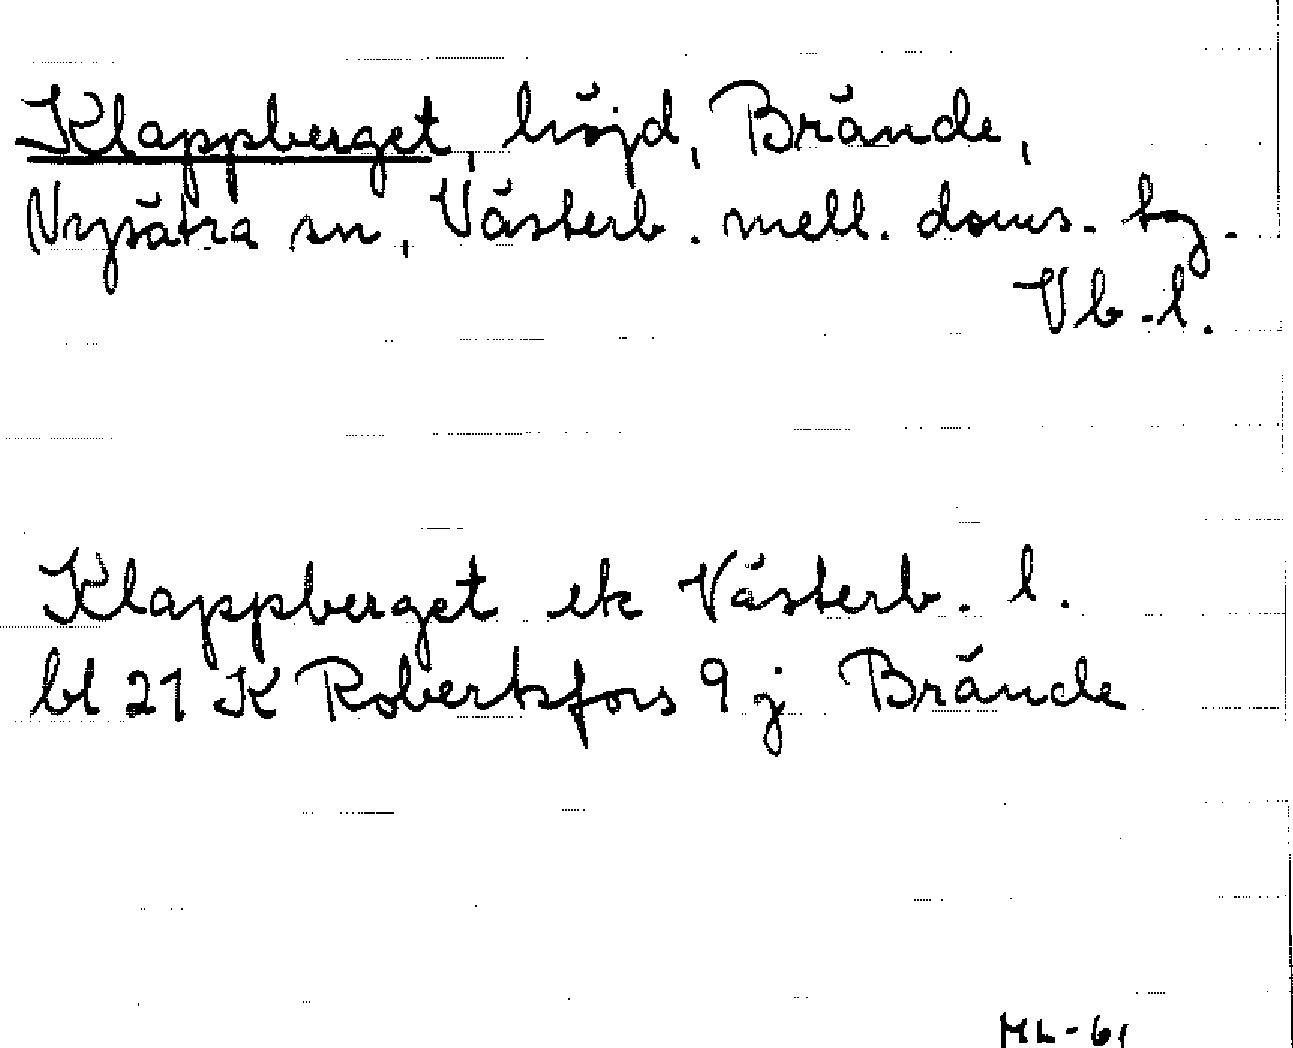 Klappberget, höjd, Brände,
Nysätra sn, Västerb. mell. doms. tg.
Vb.l.
Klappberget ek Västerb. l.
bl 21 K Robertsfors 9 j Brände
ML-61